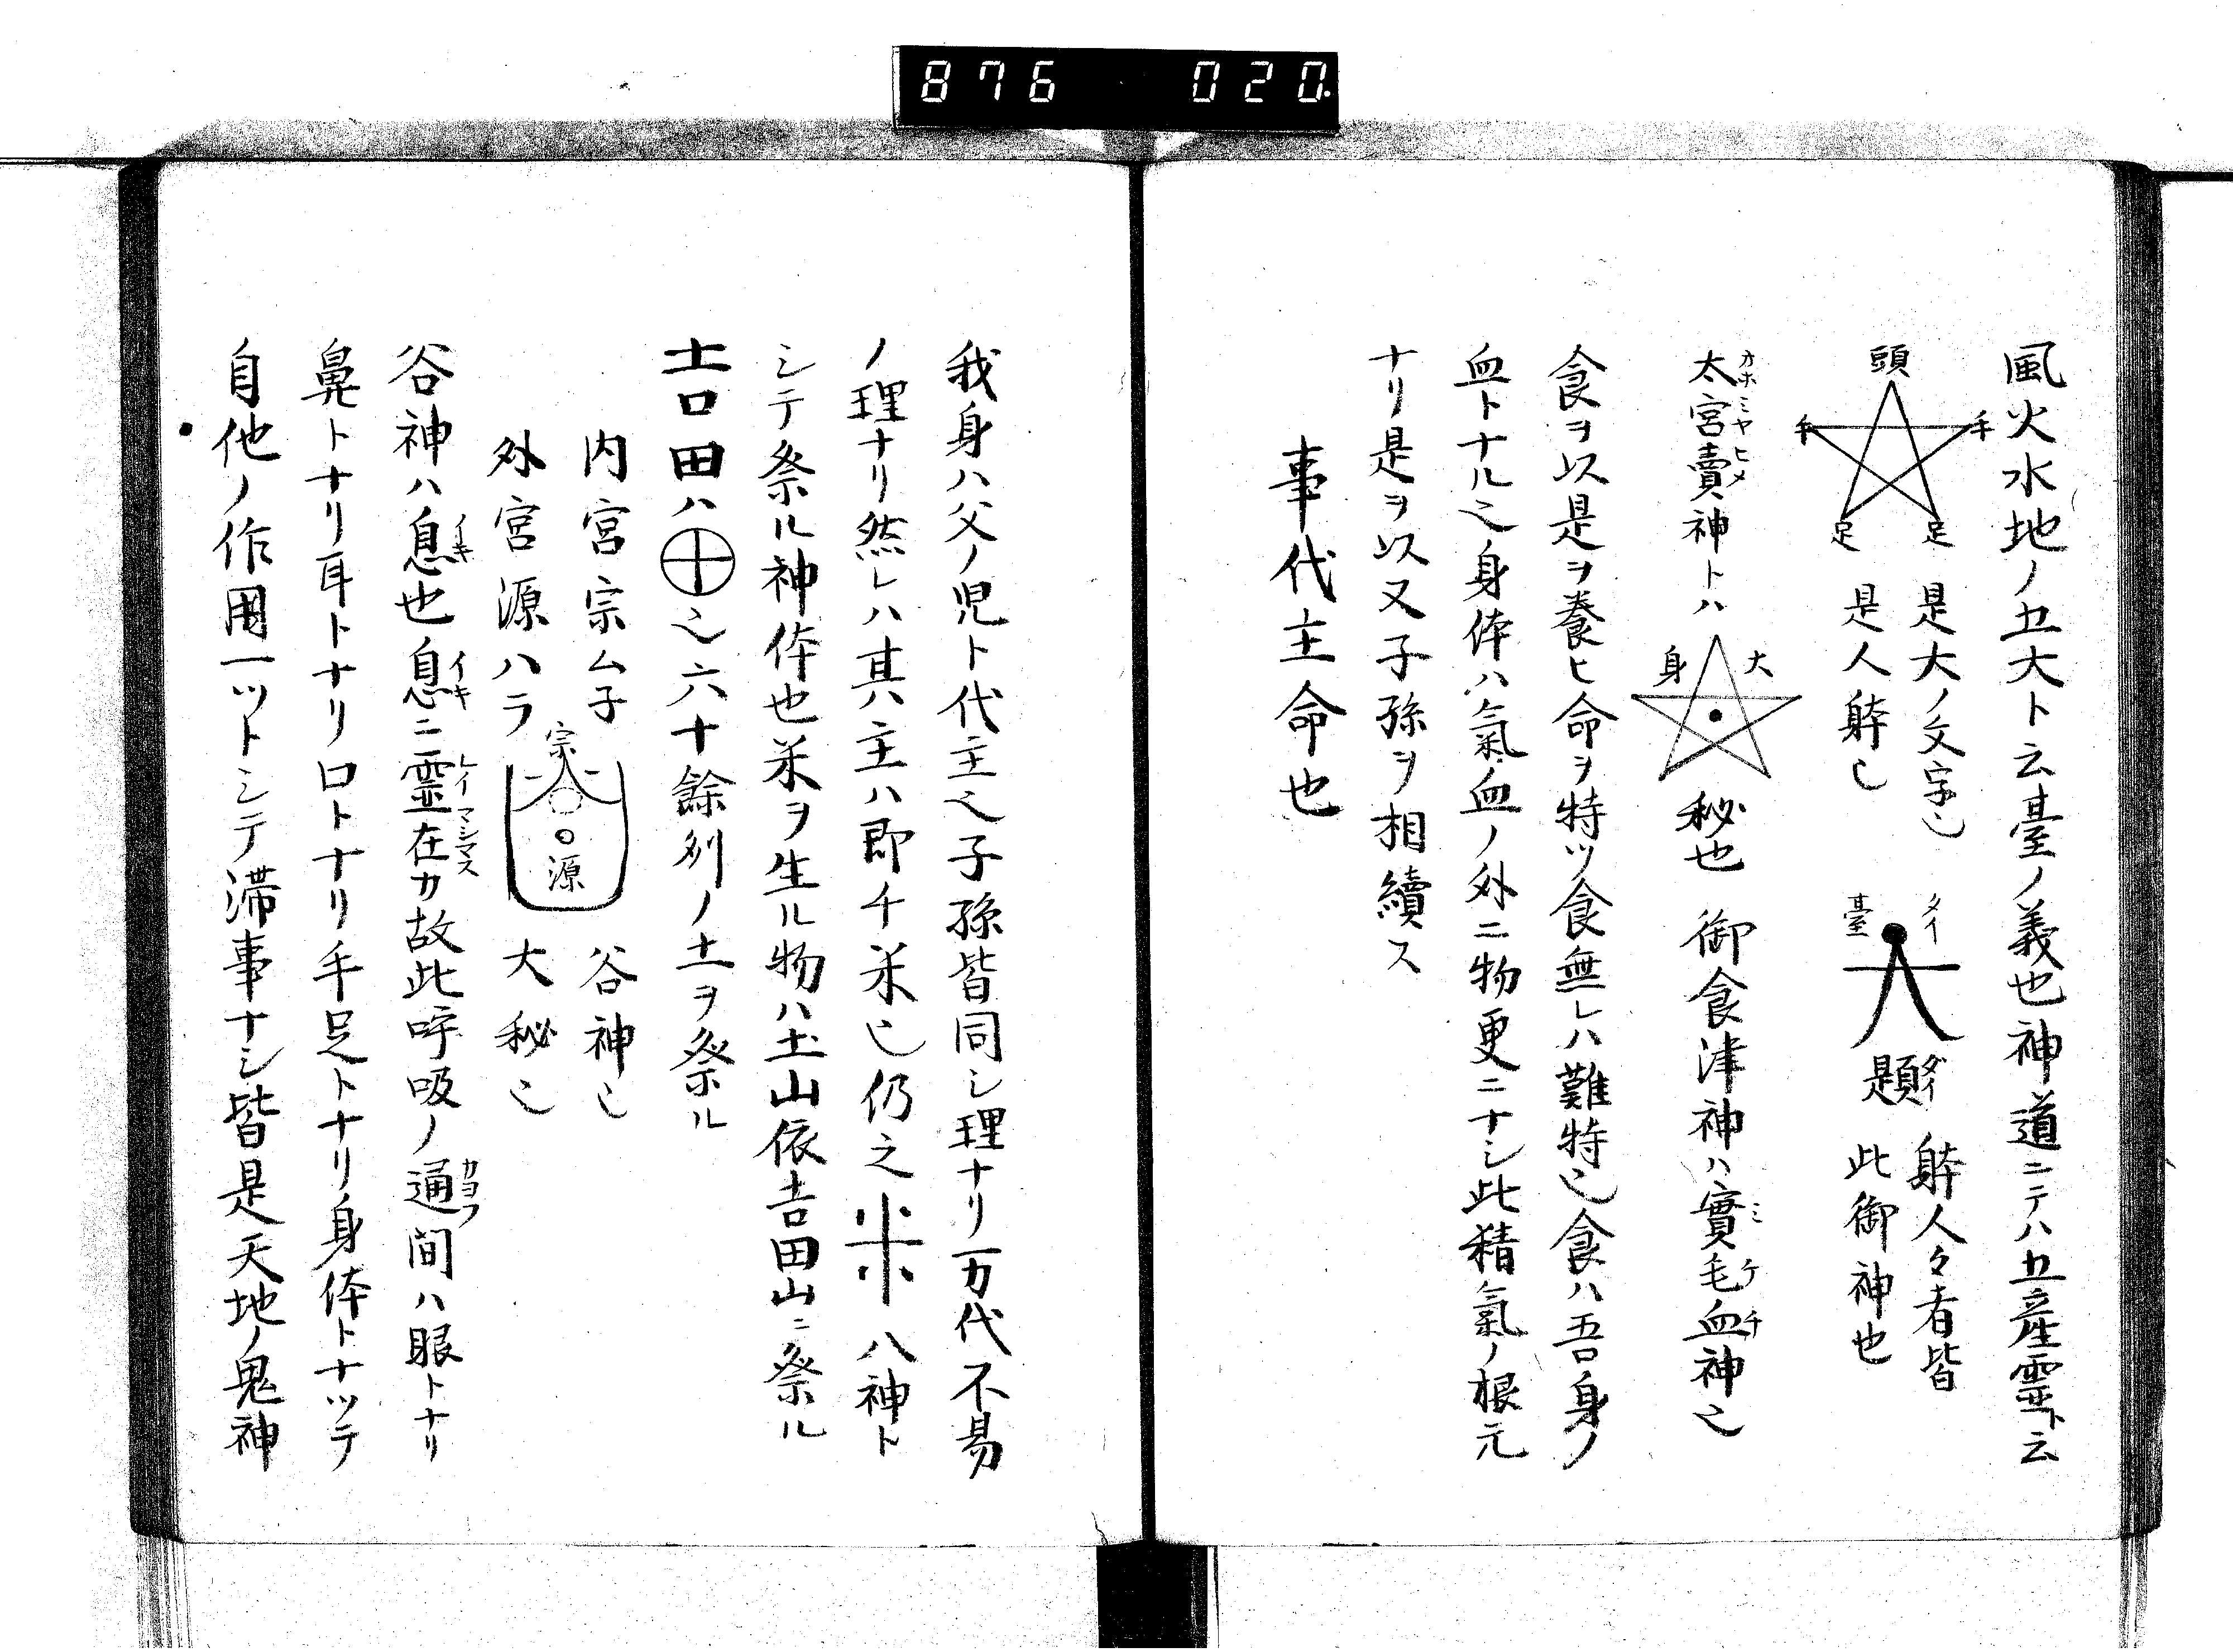 876 020.
風火水地ノ五大ト云臺ノ義也神道ニテハ五産霊ト云
頭
手 手
足 足
是大ノ文字也
是人躰也
タイ
臺
題
タイ
躰人々者皆
此御神也
太宮賣神トハ
オホミヤヒメ
大
身
秘也 御食津神ハ實毛血神也
ミケチ
食ヲ以是ヲ養ヒ命ヲ特ツ食無レハ難特也食ハ吾身ノ
血トナル也身体ハ氣血ノ外ニ物更ニナシ此精氣ノ根元
ナリ是ヲ以又子孫ヲ相續ス
事代主命也
我身ハ父ノ児ト代主也子孫皆同シ理ナリ万代不易
ノ理ナリ然レハ其主ハ即チ米也仍之米八神ト
シテ祭ル神体也米ヲ生ル物ハ土山依吉田山ニ祭ル
土口田ハ⊕也六十餘列ノ土ヲ祭ル
内宮宗ムネ
外宮源ハラ
宗
源
谷神也
大秘也
谷神ハ息也息ニ霊在カ故此呼吸ノ通間ハ眼トナリ
イキ イキ レイマシマス カヨフ
鼻トナリ耳トナリ口トナリ手足トナリ身体トナツテ
自他ノ作用一ツトシテ滞事ナシ皆是天地ノ鬼神